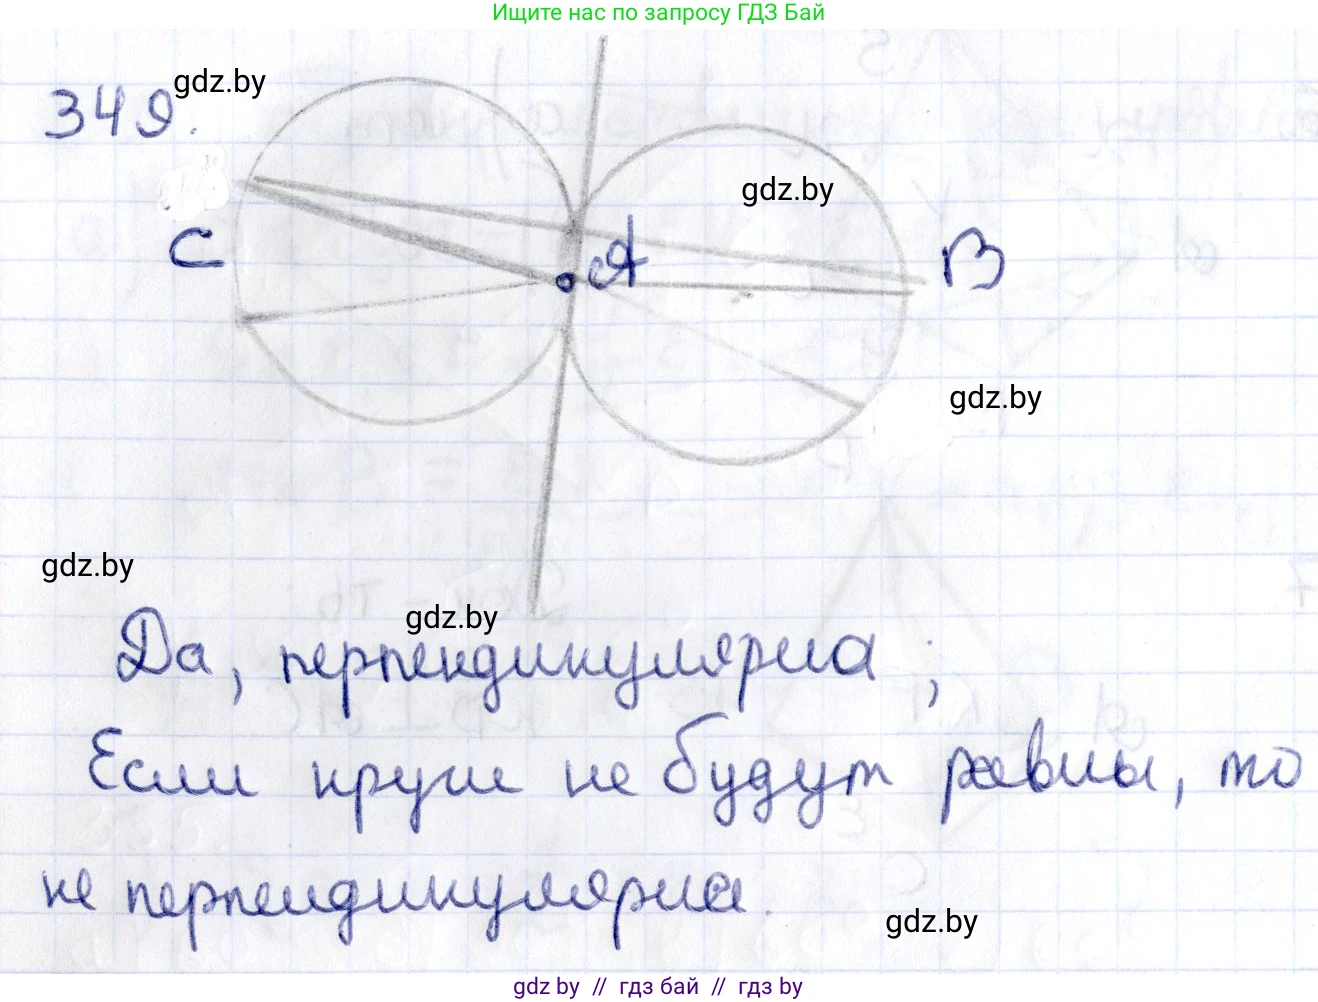 Ищите нас по запросу ГДЗ Бай
349.
gdz.by
gdz.by
C
A
B
gdz.by
gdz.by
gdz.by
Да, перпендикулярна;
Если круги не будут равны, то
не перпендикулярна.
gdz.by
gdz by // гдз бай // гдз by